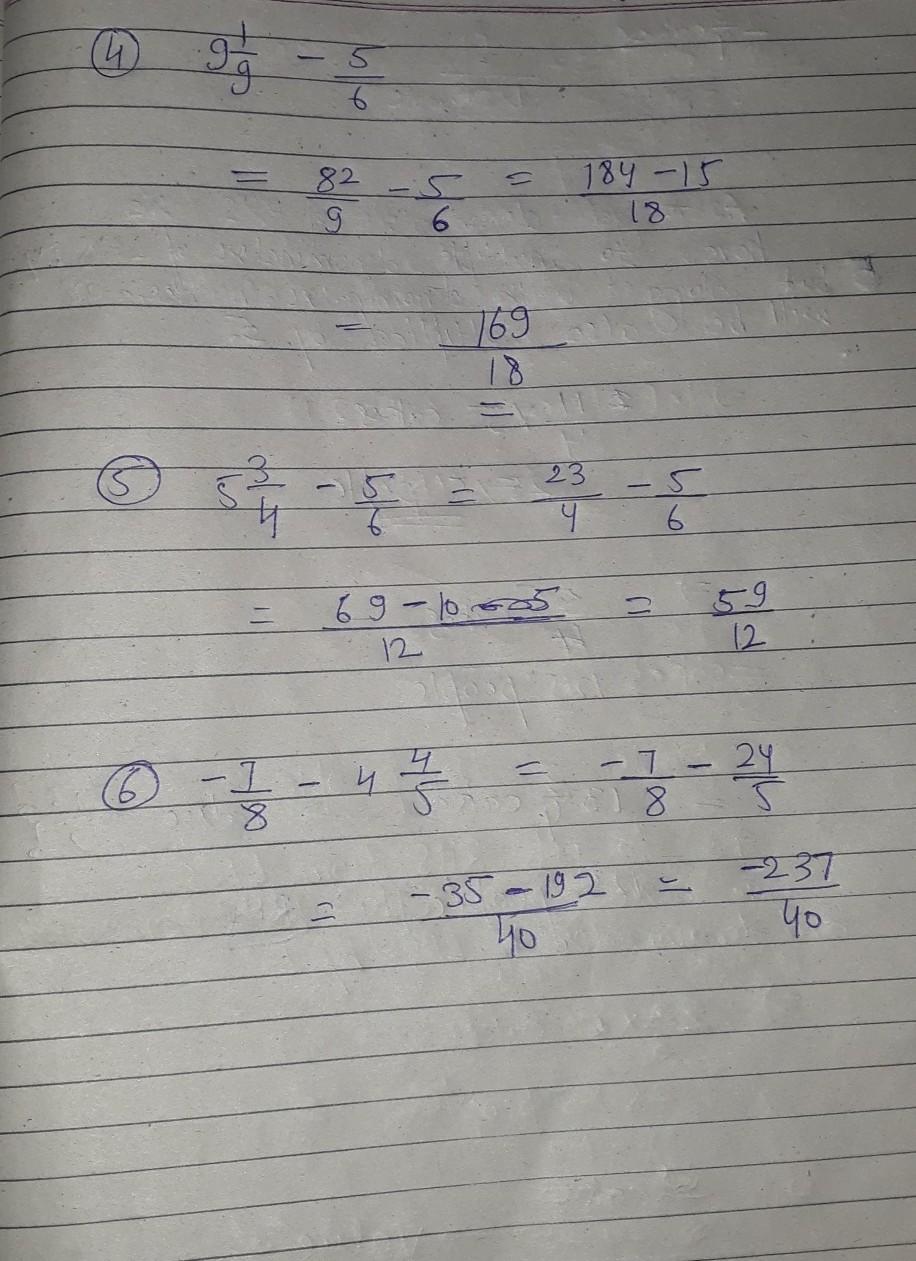 ④ 9 1/9 - 5/6
= 82/9 - 5/6 = 184 - 15/18
= 169/18
=
⑤ 5 3/4 - 5/6 = 23/4 - 5/6
= 69 - 10/12 = 59/12
⑥ -7/8 - 4 4/5 = -7/8 - 24/5
= -35 - 192/40 = -237/40